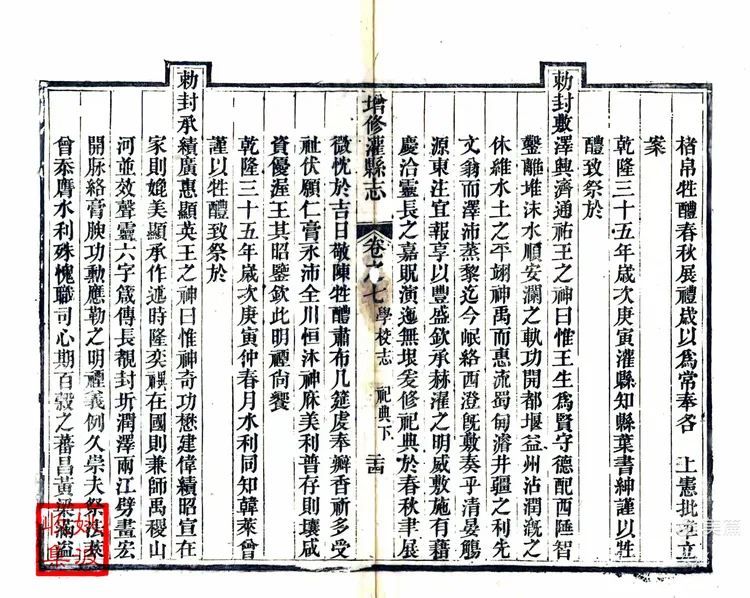 楮帛牲醴春秋展禮歲以爲常奉各 上憲批准立
案
乾隆三十五年歲次庚寅灌縣知縣葉書紳謹以牲
醴致祭於
勅封敷澤興濟通祐王之神曰惟王生爲賢守德配西陲智
鑿離堆沫水順安瀾之軌功開都堰益州沾潤漑之
休維水土之平翊神禹而惠流蜀甸濬井疆之利先
文翁而澤沛蒸黎迄今岷絡西澄旣敷奏乎淸晏觴
源東注宜報享以豐盛欽承赫濯之明威敷施有藉
慶洽靈長之嘉貺演迤無垠爰修祀典於春秋聿展
增修灌縣志
卷之七 學校志 祀典下 二十四
微忱於吉日敬陳牲醴肅布几筵虔奉瓣香祈多受
祉伏願仁膏永沛全川恒沐神庥美利普存則壤咸
資優渥王其昭鑒欽此明禋尙饗
乾隆三十五年歲次庚寅仲春月水利同知韓萊曾
謹以牲醴致祭於
勅封承績廣惠顯英王之神曰惟神奇功懋建偉績昭宣在
家則媲美顯承作述時隆奕禩在國則兼師禹稷山
河並效聲靈六字箴傳長覩封圻潤澤兩江劈畫宏
開脉絡膏腴功勳應勒之明禋義例久崇夫祭法萊
曾忝膺水利殊愧職司心期百穀之蕃昌黃粱滿溢
美篇